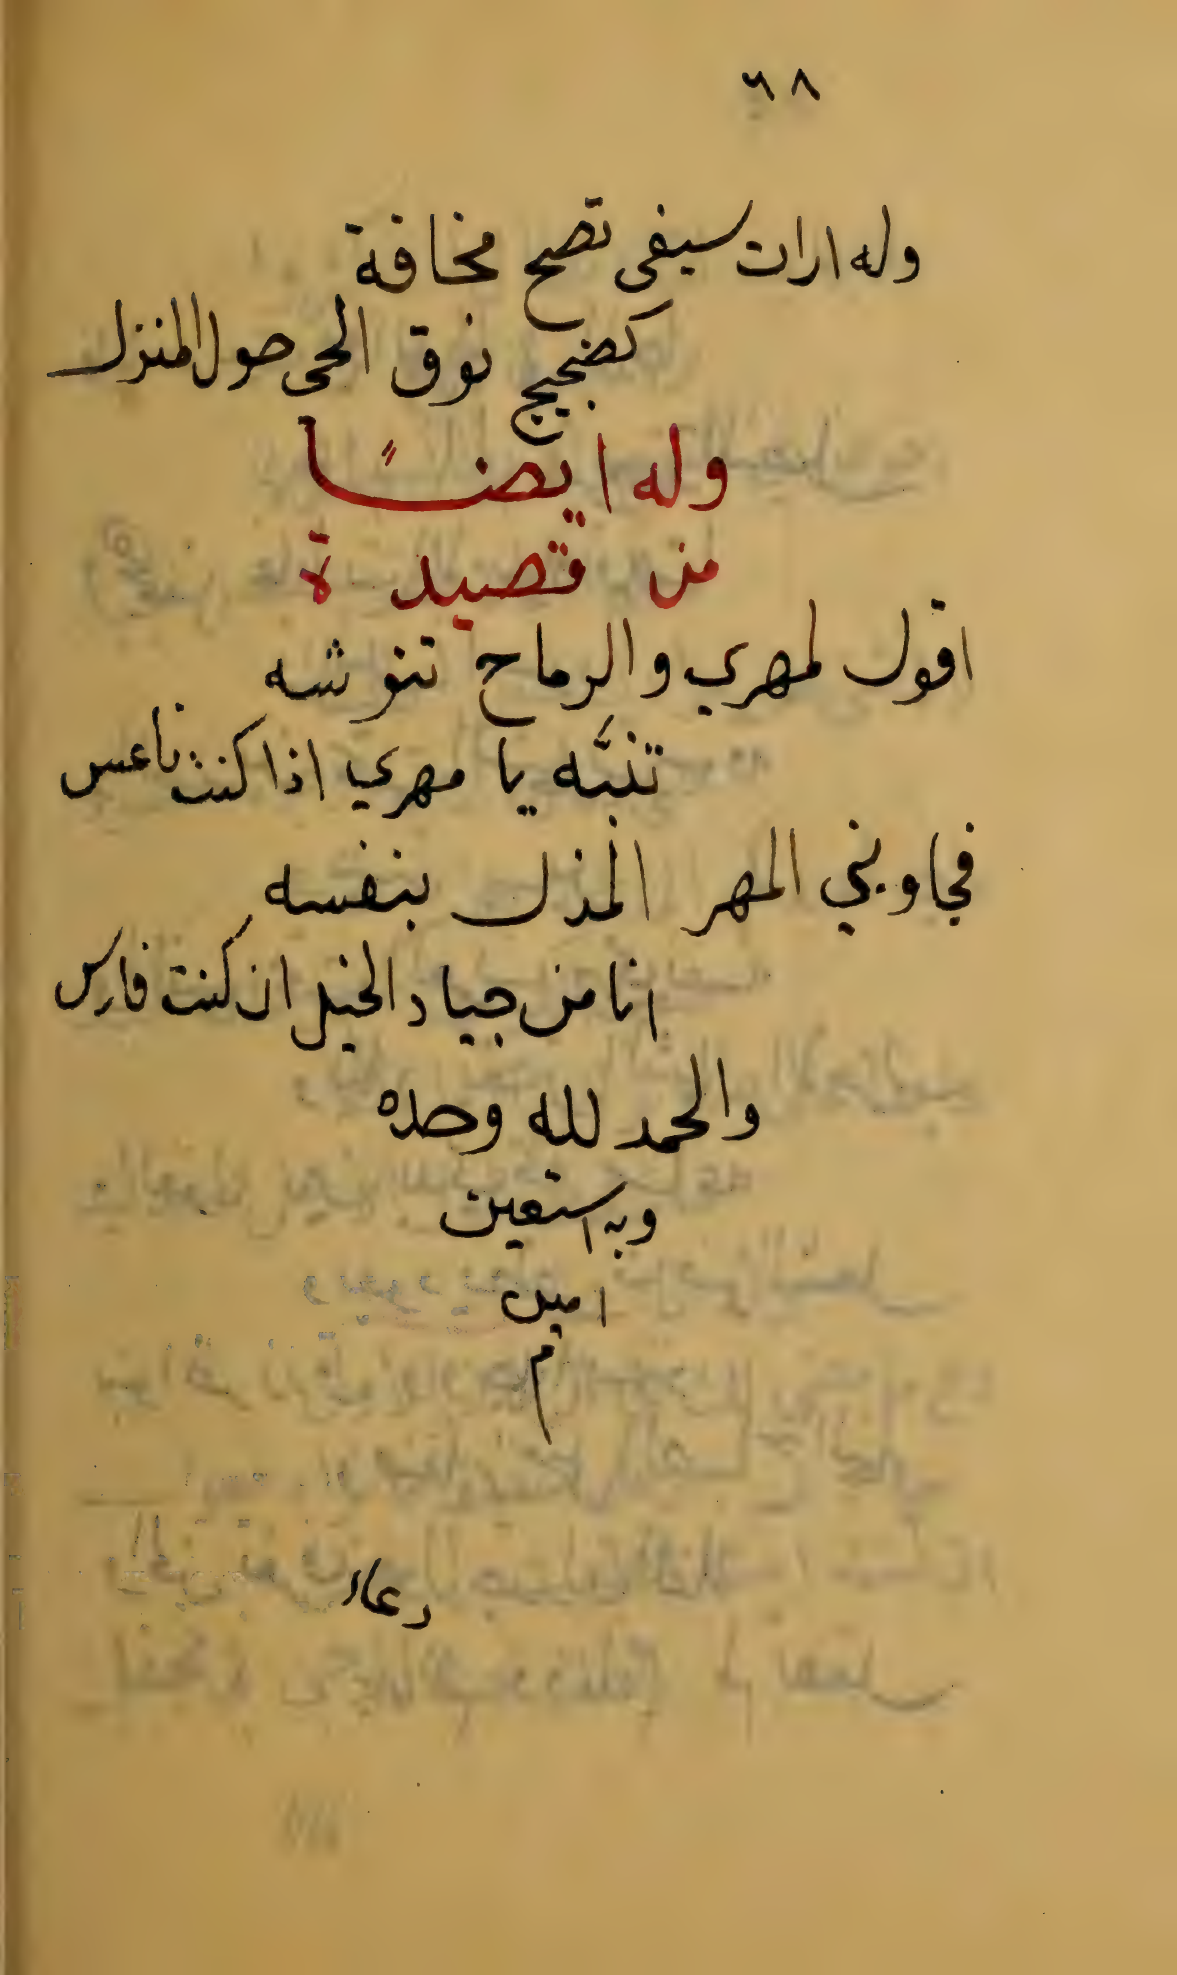 ٦٨
وله ارات سيفى تصح مخافة
كضجيج نوق الحى حول المنزل
وله ايضاً
من قصيدة
اقول لمهري والرماح تنوشه
تنبّه يا مهري اذا كنت ناعس
فجاوبني المهر المذل بنفسه
انا من جياد الخيل ان كنت فارس
والحمد لله وحده
وبه استعين
امين
م
دعاء